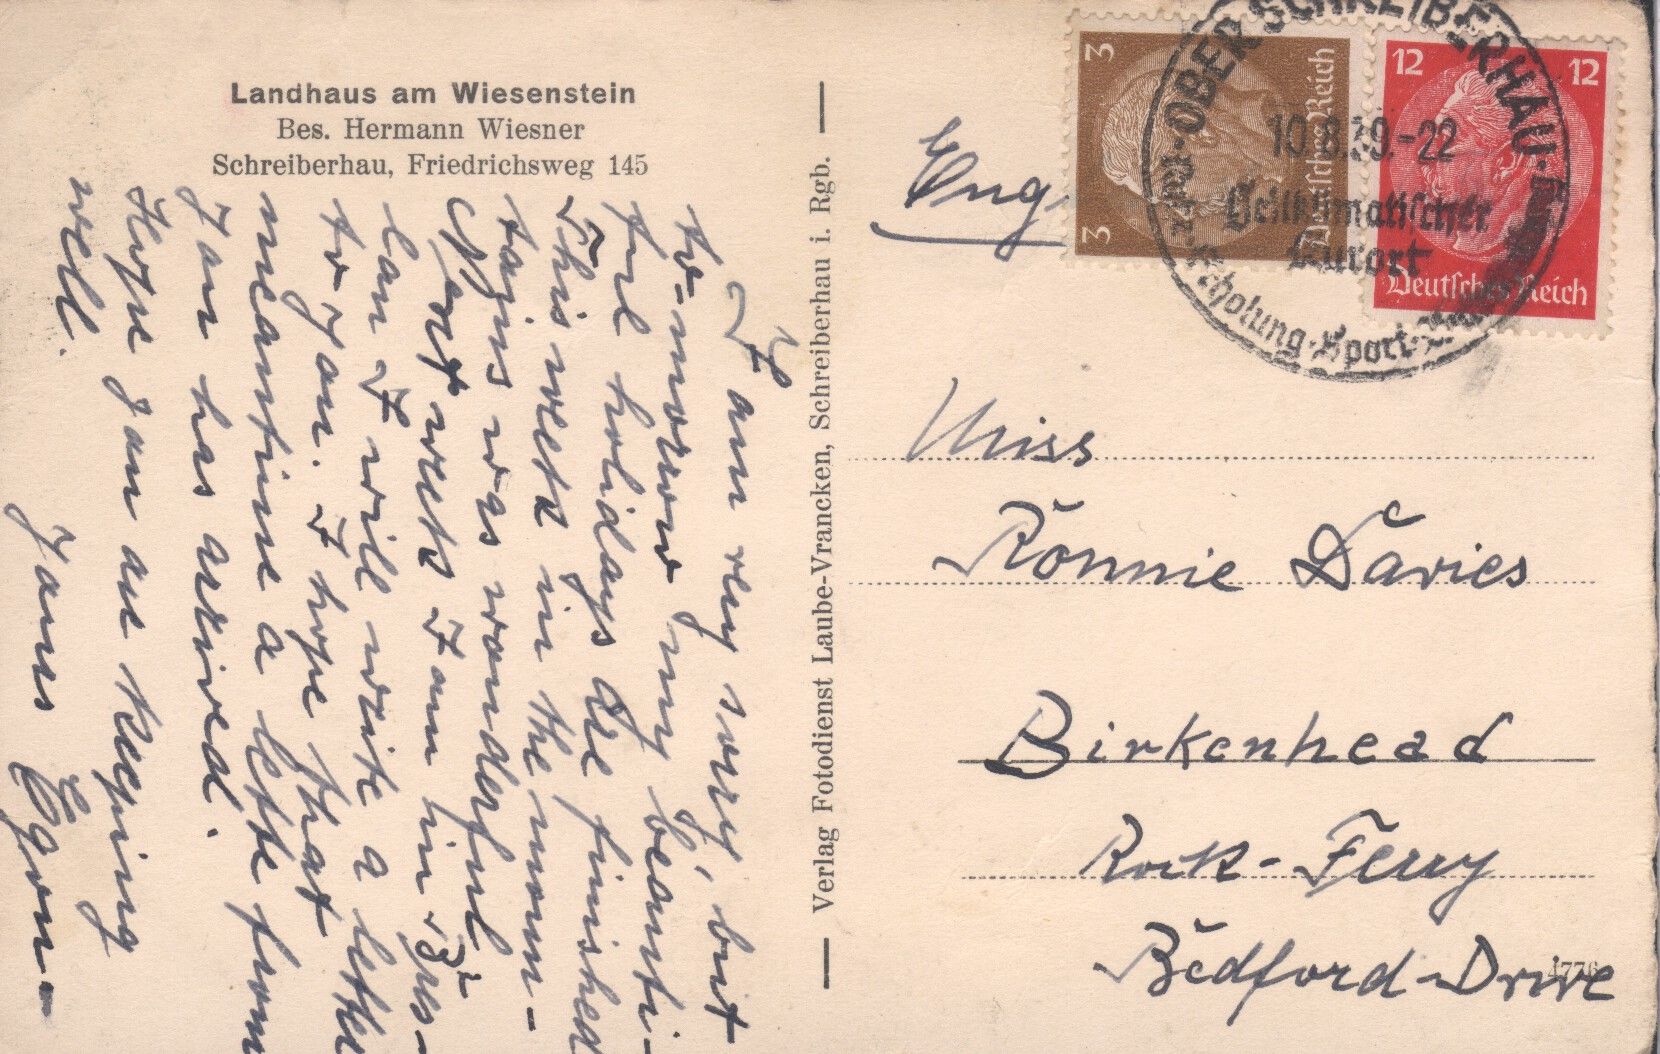 Landhaus am Wiesenstein
Bes. Hermann Wiesner
Schreiberhau, Friedrichsweg 145
I am very sorry, but
to-morrow my beauti-
ful holidays are finished
This week in the moun-
tains was wonderful
Next week I am in Bres-
lau I will write a letter
to you. I hope that
meantime a lette from
you has arrived.
Hope you are keeping
well.
Yours Egon
Verlag Fotodienst Laube-Vrancken, Schreiberhau i. Rgb.
Eng
3
3
Deutsches Reich
12
12
Deutsches Reich
OBER SCHREIBERHAU
10.8.39.-22
Heilklimatischer
Kurort
Erholung·Sport
Miss
Ronnie Davies
Birkenhead
Rock-Ferry
Bedford-Drive
4776